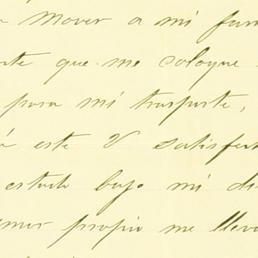 mover a mi fam
rte que me coloque
para mi trasporte,
á este V satisfet
estado bajo mi di
amor propio me lleva